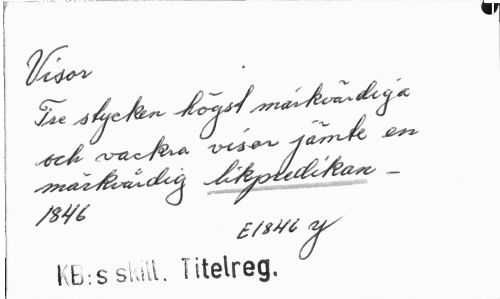 Visor
Tre stycken högst märkvärdiga
och vackra visor jämte en
märkvärdig likpredikan –
1846
E1846 y
KB:s skill. Titelreg.